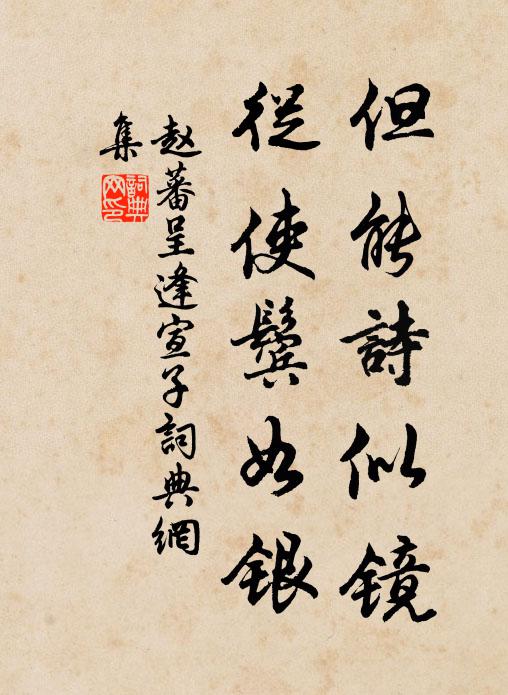 但能詩似镜
從使鬓如銀
赵蕃呈逢宣子詞典網
集
詞典
网印